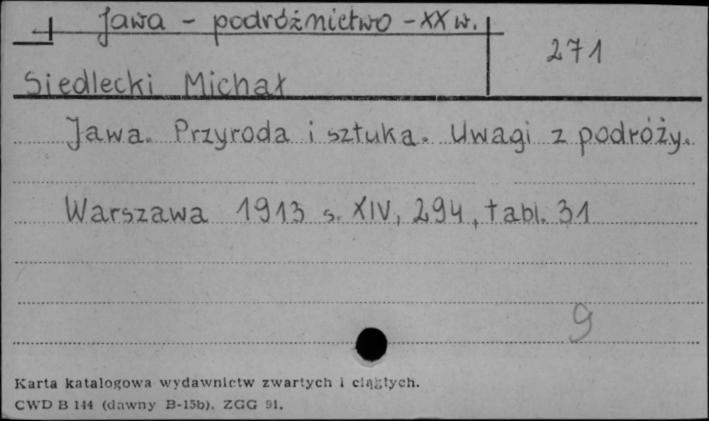 Jawa - podróżnictwo - XX w.
271
Siedlecki Michał
Jawa. Przyroda i sztuka. Uwagi z podróży.
Warszawa 1913 s. XIV, 294, tabl. 31
9
Karta katalogowa wydawnictw zwartych i ciągłych.
CWD B 144 (dawny B-15b). ZGG 91.